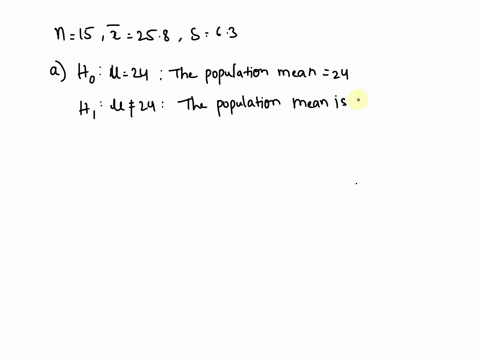 n=15, x̄=25.8, S=6.3
a) H₀: μ=24: The population mean =24
H₁: μ≠24: The population mean is